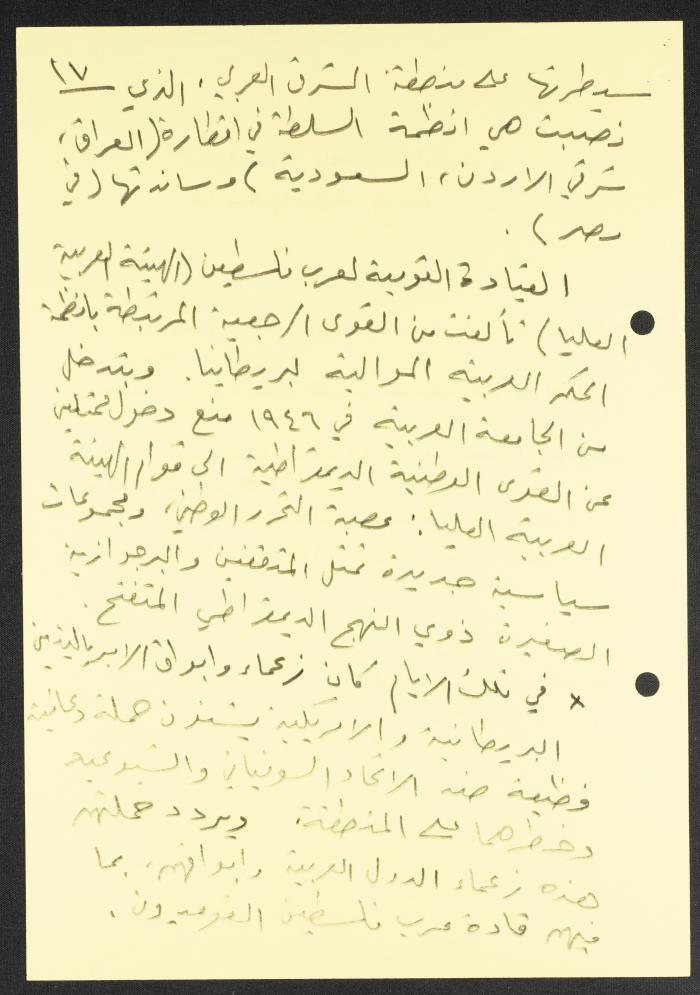 ١٧
سيطرتها على منطقة المشرق العربي، الذي
نصبت هي انظمة السلطة في اقطاره (العراق،
شرقي الاردن، السعودية) وساندتها (في
مصر).
القيادة القومية لعرب فلسطين (الهيئة العربية
العليا) تألفت من القوى الرجعية المرتبطة بانظمة
الحكم العربية الموالية لبريطانيا. وبتدخل
من الجامعة العربية في ١٩٤٦ منع دخول ممثلين
عن القوى الوطنية الديمقراطية الى قوام الهيئة
العربية العليا: عصبة التحرر الوطني، ومجموعات
سياسية جديدة تمثل المثقفين والبرجوازية
الصغيرة ذوي النهج الديمقراطي المتفتح.
x في تلك الايام كان زعماء وابواق الامبرياليتين
البريطانية والامريكية يشنون حملة دعائية
فظيعة ضد الاتحاد السوفياتي والشيوعية
وخطرهما على المنطقة. ويردد حملتهم
هذه زعماء الدول العربية وابواقهم، بما
فيهم قادة عرب فلسطين القوميون.